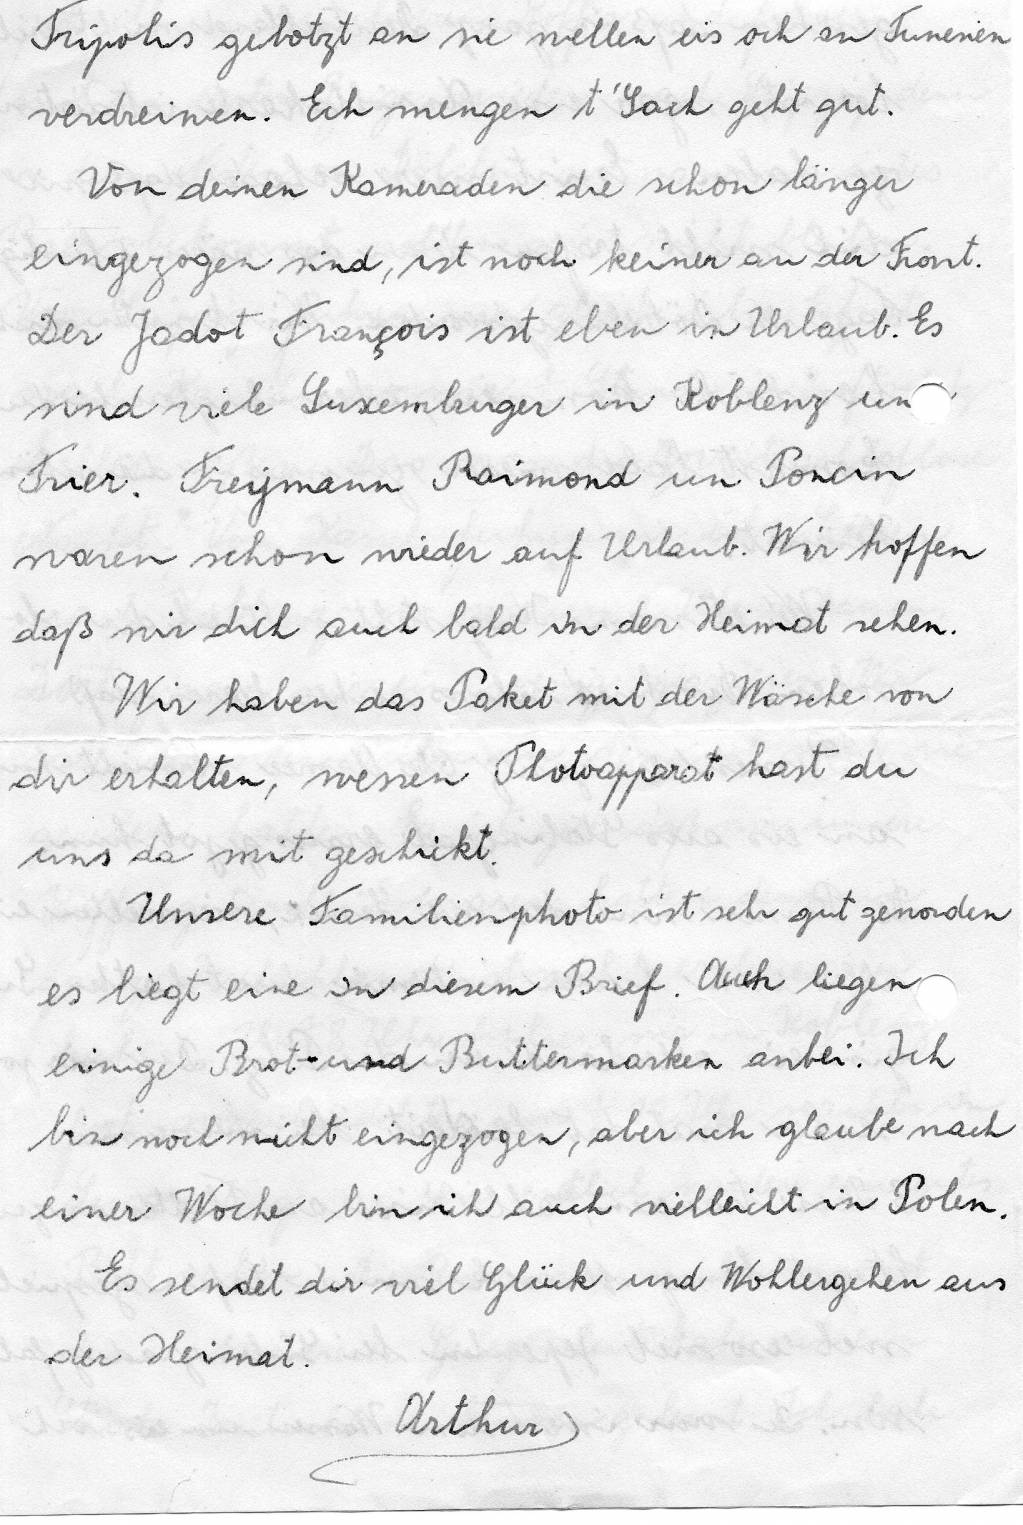 Tripolis gebotzt an sie wellen eis och an Tunesien
verdreiwen. Ech mengen t'Sach geht gut.
Von deinen Kameraden die schon länger
eingezogen sind, ist noch keiner an der Front.
Der Jadot François ist eben in Urlaub. Es
sind viele Luxemburger in Koblenz un
Trier. Freijmann Raimond un Poncin
waren schon wieder auf Urlaub. Wir hoffen
daß wir dich auch bald in der Heimat sehen.
Wir haben das Paket mit der Wäsche von
dir erhalten, wessen Photoapparat hast du
uns da mit geschickt.
Unsere Familienphoto ist sehr gut geworden
es liegt eine in diesem Brief. Auch liegen
einige Brot- und Buttermarken anbei. Ich
bin noch nicht eingezogen, aber ich glaube nach
einer Woche bin ich auch vielleicht in Polen.
Es sendet dir viel Glück und Wohlergehen aus
der Heimat.
Arthur